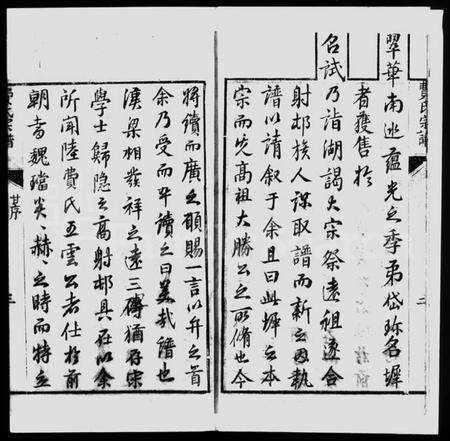 費氏宗譜
翠華南巡蘊光之季弟岱珎名墀
者獲售於
召試乃詣湖謁大宗祭遠祖遂合
射邨族人謀取譜而新之因執
譜以請叙于余且曰此墀之本
宗而先高祖大勝公之所脩也今
將續而廣之願賜一言以弁之首
余乃受而卒讀之曰美哉譜也
漢梁相發祥之遠三磚猶存宋
學士歸隱之高射邨具在以余
所聞陸費氏五雲公者仕於前
朝當魏璫炎炎赫赫之時而特立
費氏宗譜
序
三